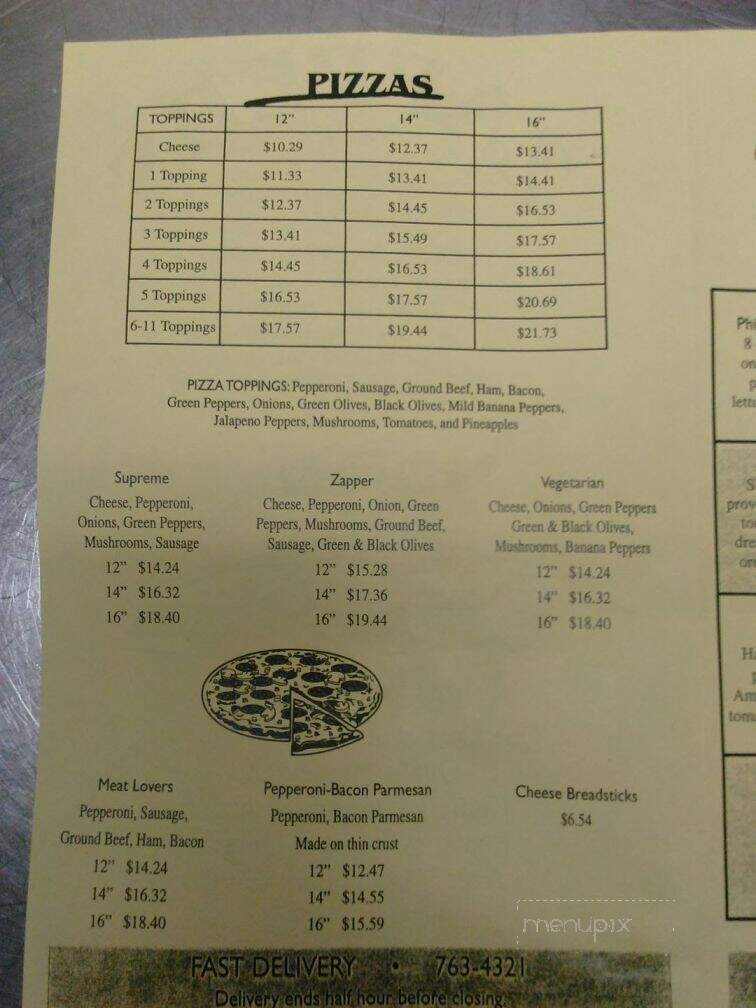 PIZZAS
TOPPINGS 12" 14" 16"
Cheese $10.29 $12.37 $13.41
1 Topping $11.33 $13.41 $14.41
2 Toppings $12.37 $14.45 $16.53
3 Toppings $13.41 $15.49 $17.57
4 Toppings $14.45 $16.53 $18.61
5 Toppings $16.53 $17.57 $20.69
6-11 Toppings $17.57 $19.44 $21.73
PIZZA TOPPINGS: Pepperoni, Sausage, Ground Beef, Ham, Bacon,
Green Peppers, Onions, Green Olives, Black Olives, Mild Banana Peppers,
Jalapeno Peppers, Mushrooms, Tomatoes, and Pineapples
Supreme
Cheese, Pepperoni,
Onions, Green Peppers,
Mushrooms, Sausage
12" $14.24
14" $16.32
16" $18.40
Zapper
Cheese, Pepperoni, Onion, Green
Peppers, Mushrooms, Ground Beef,
Sausage, Green & Black Olives
12" $15.28
14" $17.36
16" $19.44
Vegetarian
Cheese, Onions, Green Peppers
Green & Black Olives,
Mushrooms, Banana Peppers
12" $14.24
14" $16.32
16" $18.40
Meat Lovers
Pepperoni, Sausage,
Ground Beef, Ham, Bacon
12" $14.24
14" $16.32
16" $18.40
Pepperoni-Bacon Parmesan
Pepperoni, Bacon Parmesan
Made on thin crust
12" $12.47
14" $14.55
16" $15.59
Cheese Breadsticks
$6.54
menupix
FAST DELIVERY • 763-4321
Delivery ends half hour before closing.
8
on